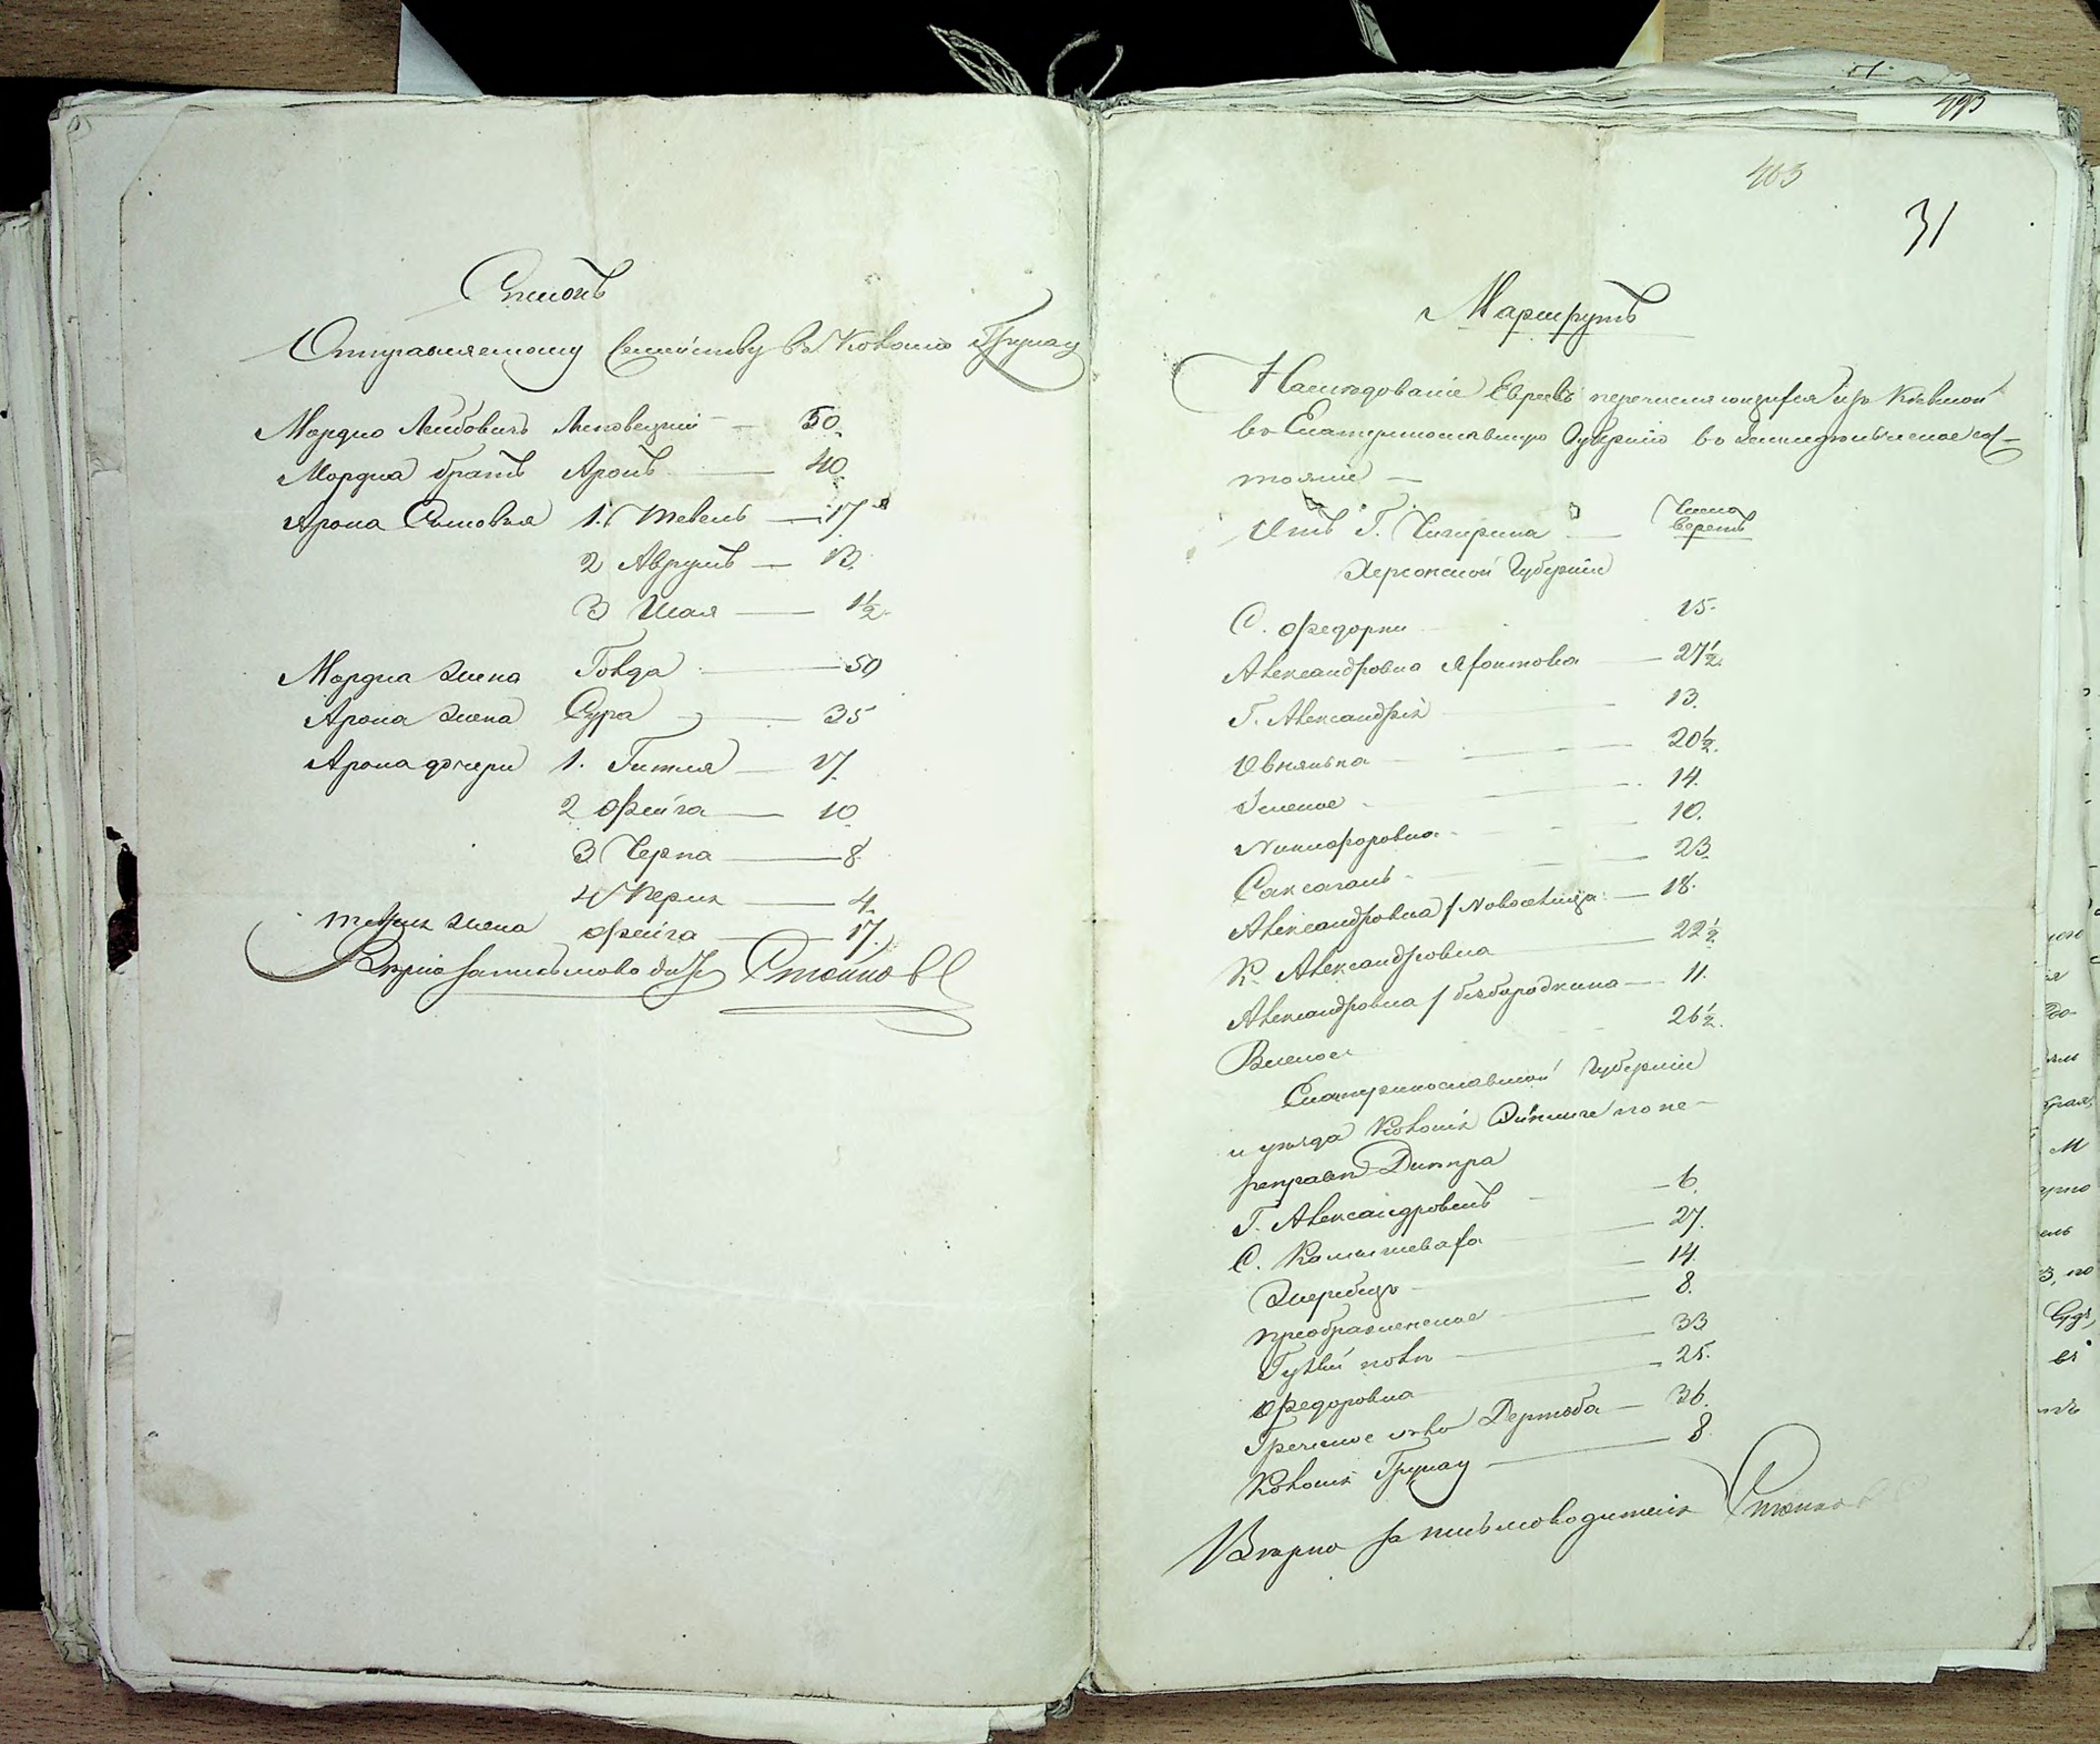 Списокъ
Отправляемому Семейству въ Колонію Грунау
Мордко Лейбовичъ Липовецкий — 50.
Мордка братъ Аронъ — 40.
Арона Сыновья 1. Тевель — 17
2 Аврумъ — 13.
3 Шая — 1½.
Мордка жена Голда — 50
Арона жена Сура — 35
Арона дочери 1. Гитля — 17.
2 Фейга — 10.
3 Черна — 8.
4 Перля — 4.
Тевеля жена Фейга — 17.
Вѣрно за письмоводителя
403
31
Маршрутъ
На слѣдованіе Евреевъ перечисляющихся изъ Кіевской
въ Екатеринославскую Губернію въ земледѣльческое сос-
тояніе —
Отъ Г. Чигирина — Число верстъ
Херсонской Губерніи
С. Федорки 15.
Александровка — 27½.
Г. Александрія 13.
Овнянка — 20½.
Зеленое 14.
Никифоровка 10.
Саксагань 23.
Александровка / Новоселица — 18.
К. Александровка — 22½.
Александровка / безбородкина — 11.
26½.
Екатеринославской Губерніи
и уѣзда Колонія по пе-
реправѣ Днѣпра
Г. Александровскъ — 6.
С. Камышеваха — 27.
Жеребецъ — 14.
Преображенское — 8.
Гуляй поле — 33
Федоровка — 25.
Греческое село — 36.
Колонія Грунау — 8.
Вѣрно за письмоводителя